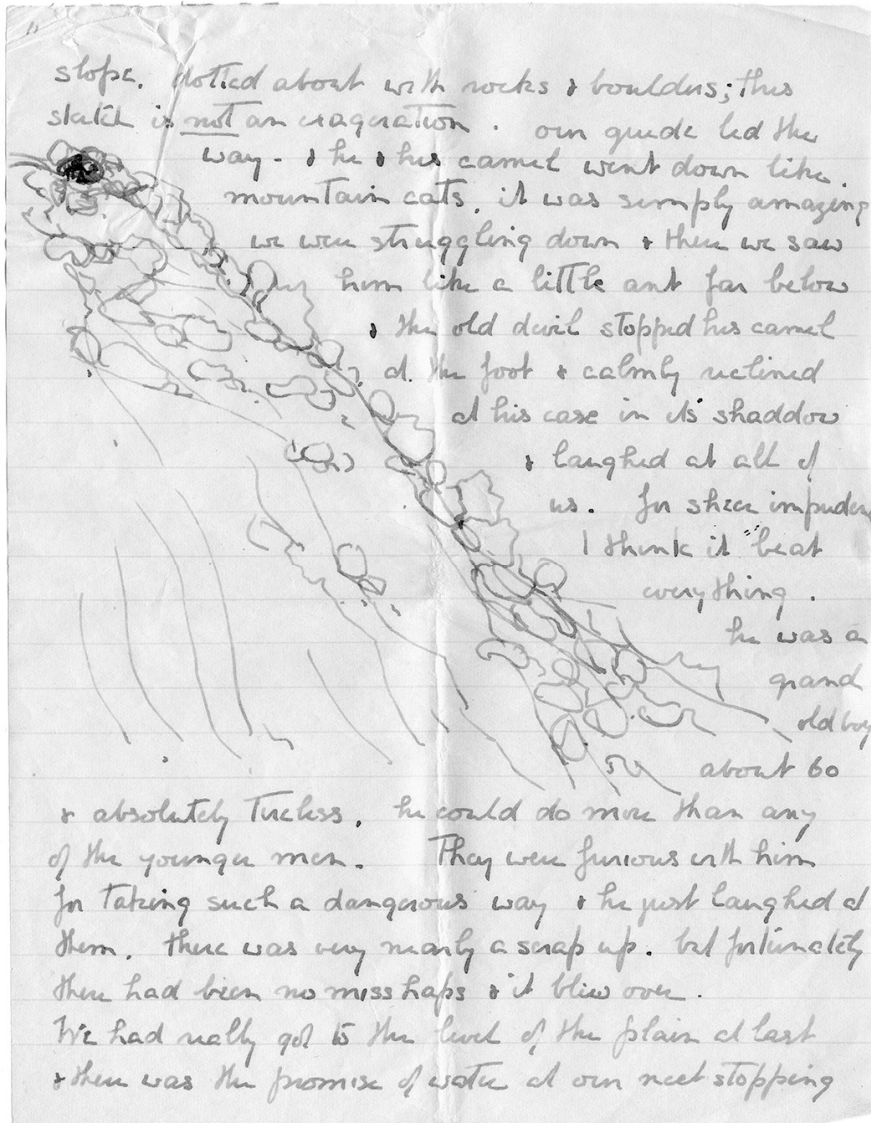 11
slope. dotted about with rocks & boulders; this
sketch is not an exageration. our guide led the
way - & he & his camel went down like
mountain cats, it was simply amazing
we were struggling down & there we saw
him like a little ant far below
& the old devil stopped his camel
at the foot & calmly reclined
at his ease in its shaddow
& laughed at all of
us. for sheer impuden
I think it beat
everything.
he was a
grand
old boy
about 60
& absolutely tireless. he could do more than any
of the younger men. They were furious with him
for taking such a dangerous way & he just laughed at
them. there was very nearly a scrap up. but fortunately
there had been no misshaps & it blew over.
We had really got to the level of the plain at last
& there was the promise of water at our next stopping